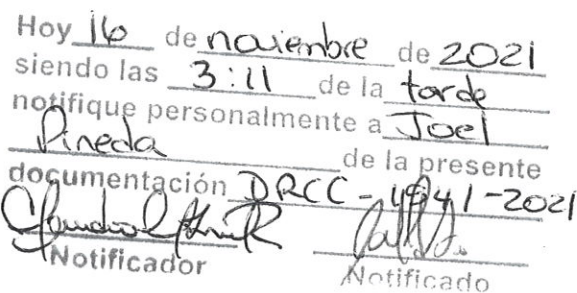 Hoy 16 de noviembre de 2021
siendo las 3:11 de la tarde
notifique personalmente a Joel
Pineda de la presente
documentación DRCC-1941-2021
Notificador Notificado